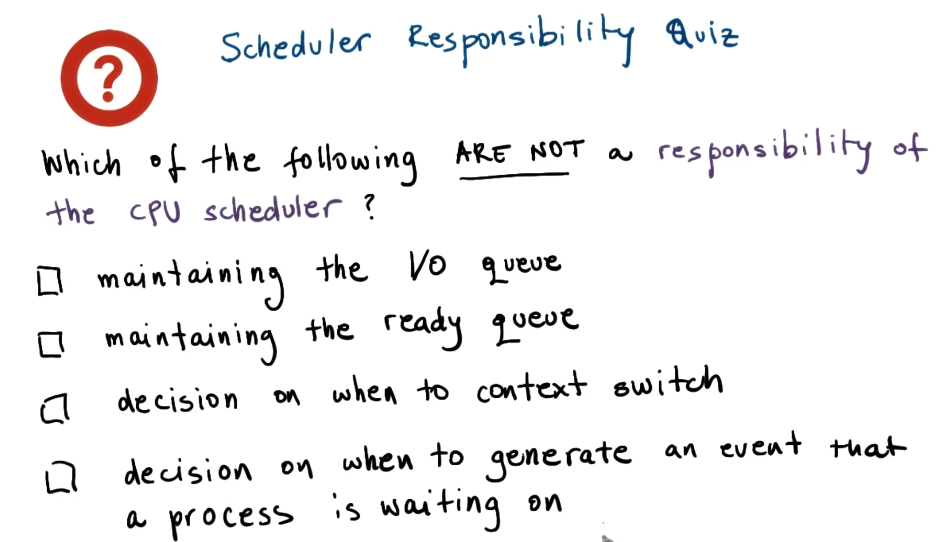 ?
Scheduler Responsibility Quiz
Which of the following ARE NOT a responsibility of
the CPU scheduler ?
maintaining the I/O queue
maintaining the ready queue
decision on when to context switch
decision on when to generate an event that
a process is waiting on